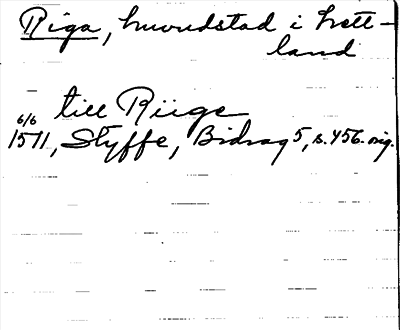 Riga, huvudstad i Lett-
land
till Riige
6/6
1511, Styffe, Bidrag 5, s. 456. orig.